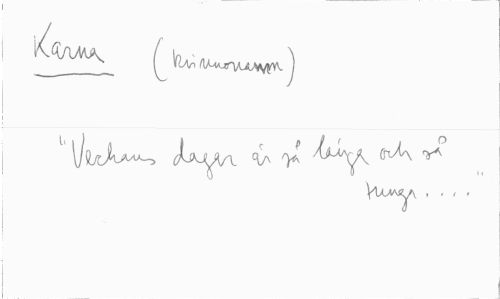 Karna (kvinnonamn)
"Veckans dagar är så långa och så
tunga...."